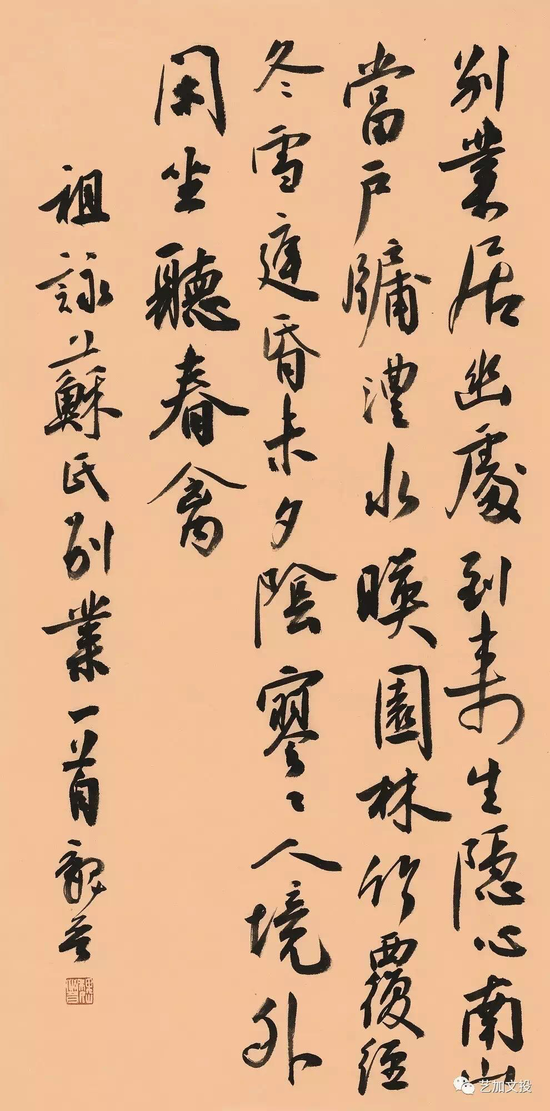 别業居幽處到來生隱心南山
當户牖澧水暎園林竹覆經
冬雪庭昏未夕陰寥〻人境外
閑坐聽春禽
祖詠蘇氏别業一首
艺加文投